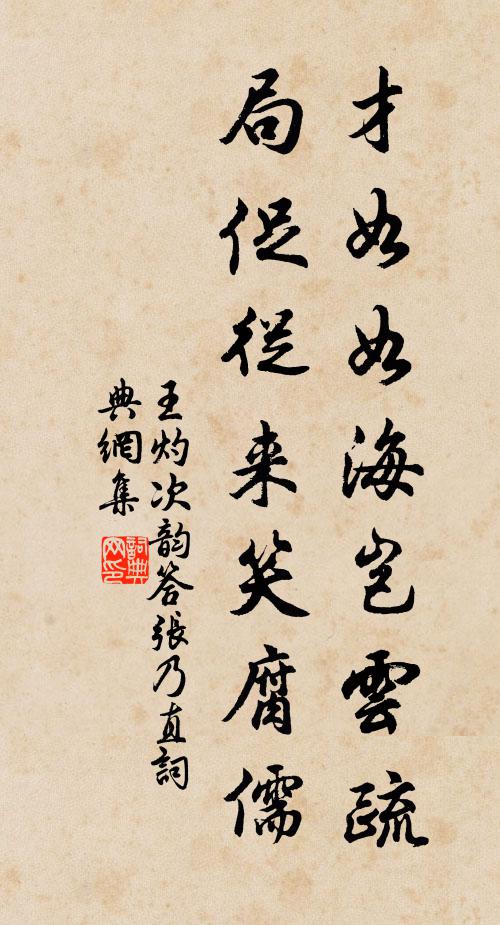 才如如海豈雲疏
局促從来笑腐儒
王灼次韵答張乃直詞
典網集
詞典
网印